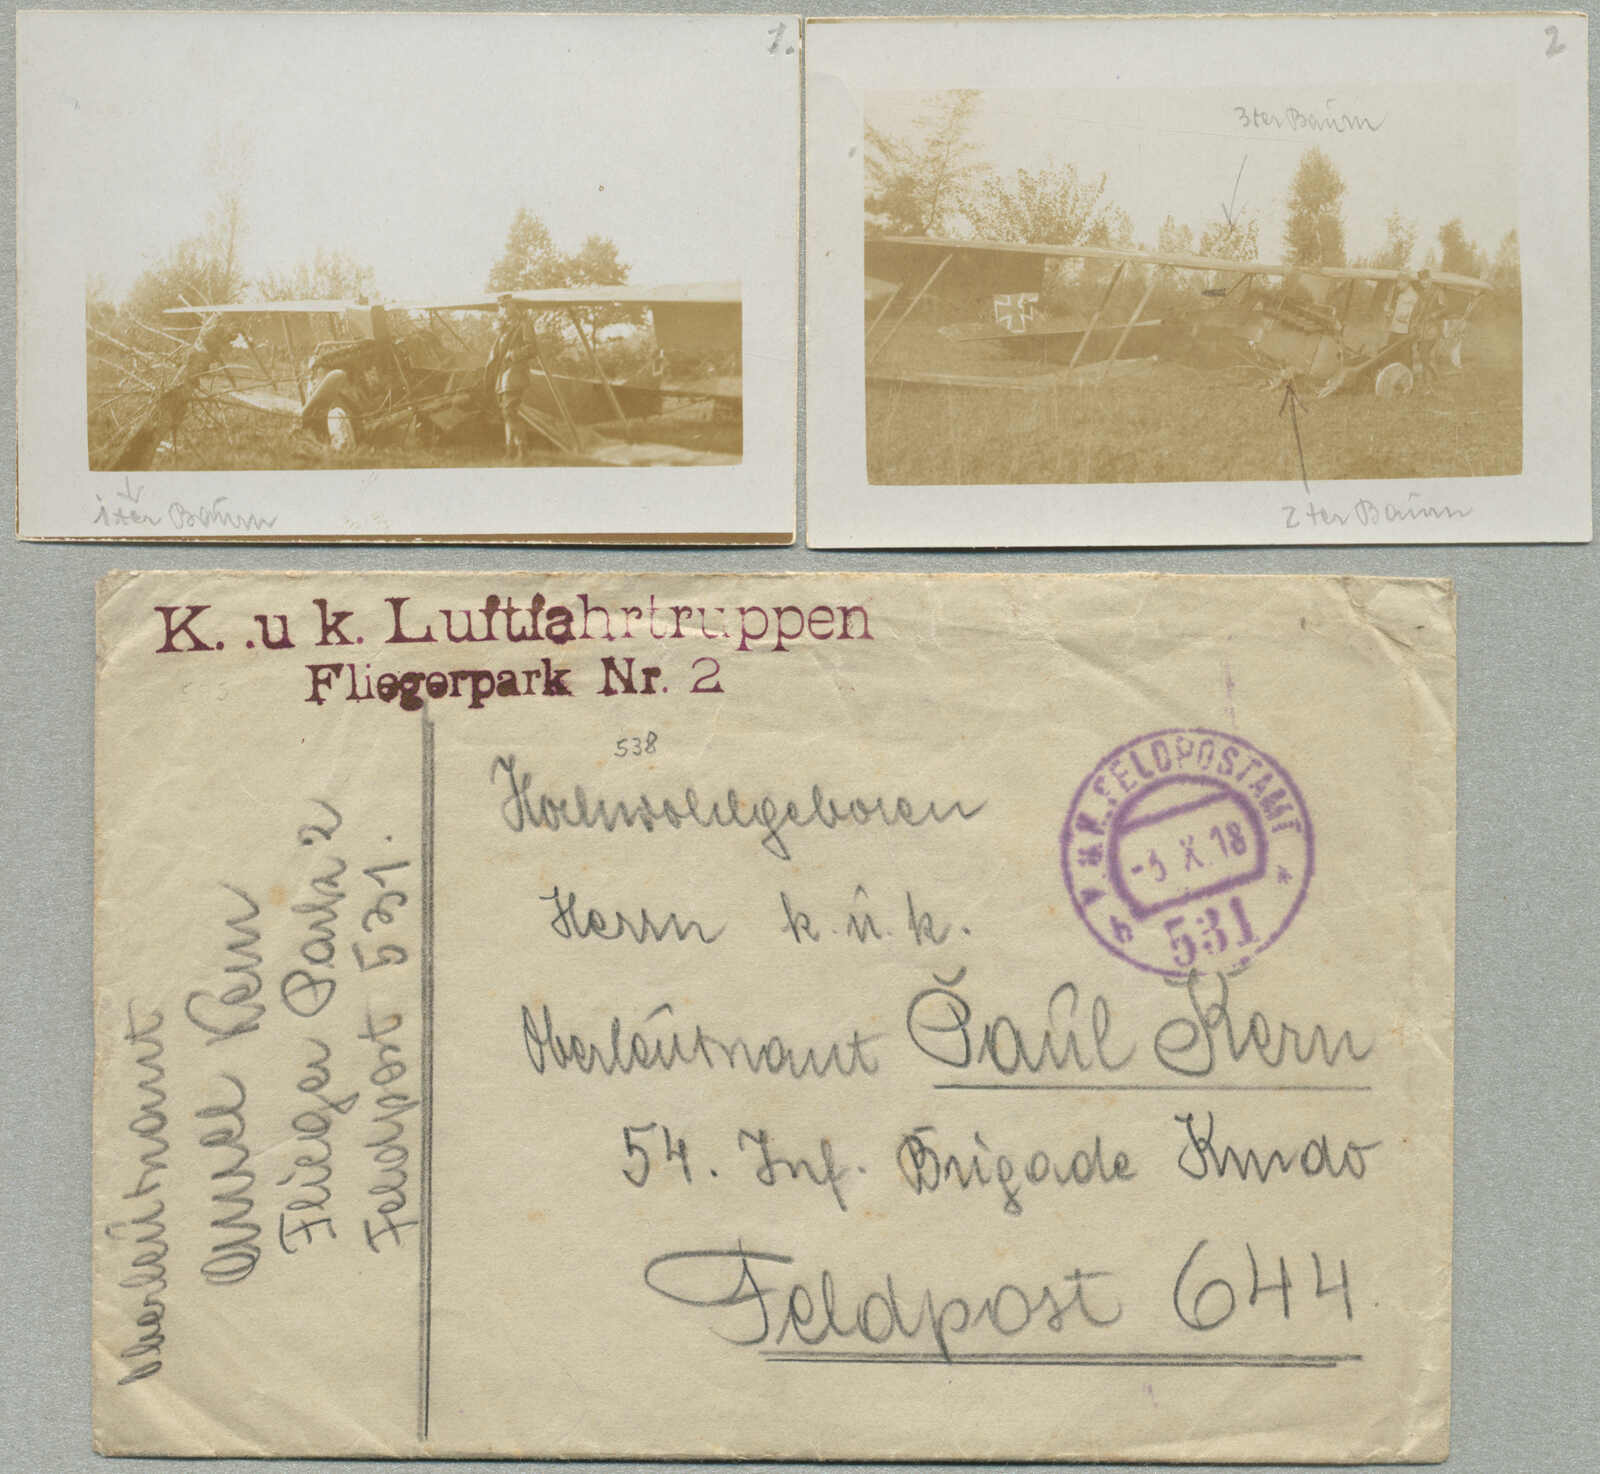 1.
1ter Baum
2
3ter Baum
2ter Baum
K. u k. Luftfahrtruppen
Fliegerpark Nr. 2
538
Hochwohlgeboren
Herrn k. u. k.
Oberleutnant Paul Kern
54. Inf. Brigade Kmdo
Feldpost 644
K.u.K. FELDPOSTAMT
X. 18
531
Oberleutnant
Kern
Flieger Park 2
Feldpost 531.